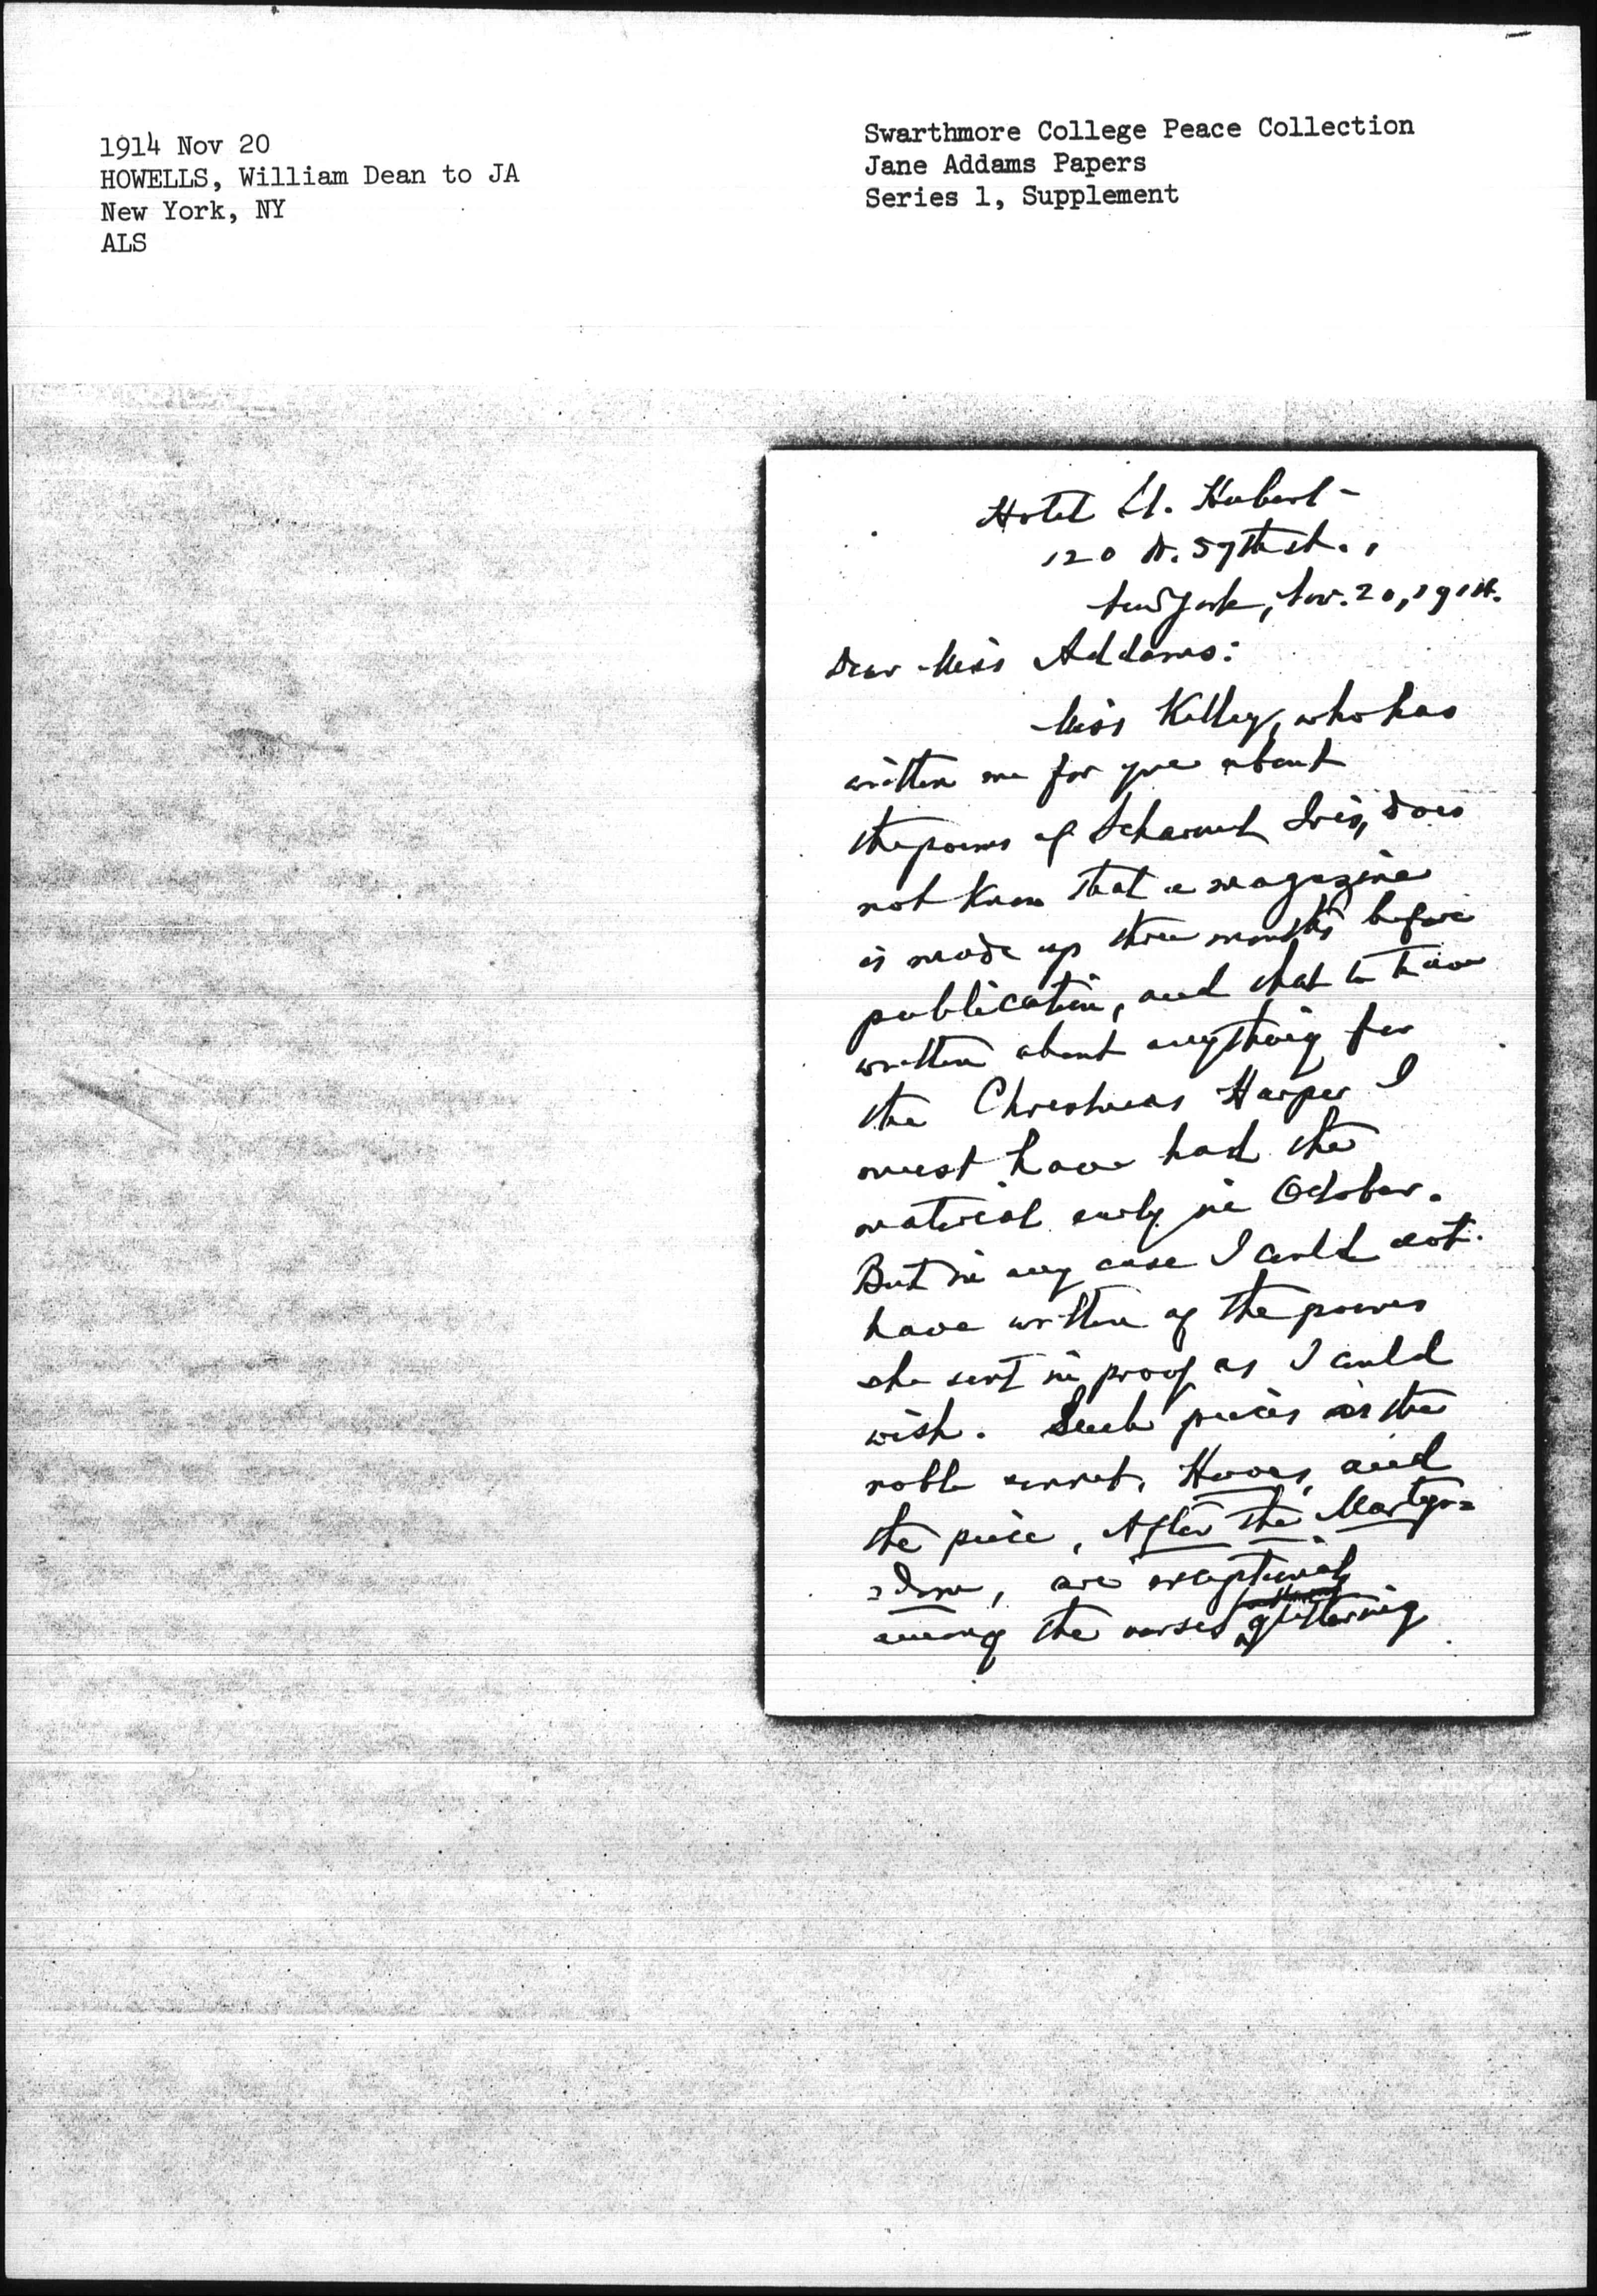 1914 Nov 20
HOWELLS, William Dean to JA
New York, NY
ALS
Swarthmore College Peace Collection
Jane Addams Papers
Series 1, Supplement
Hotel St. Hubert -
120 W. 57th st.,
New York, Nov. 20, 1914.
Dear Miss Addams:
Miss Kelley, who has
written me for you about
the poems of Scharmel Iris, does
not know that a magazine
is made up three months before
publication, and that to have
written about anything for
the Christmas Harper I
must have had the
material early in October.
But in any case I could not
have written of the poems
she sent in proof as I could
wish. Such pieces as the
noble sonnet, Heroes, and
the piece, After the Martyr=
=dom, are exceptional
among the verses glittering